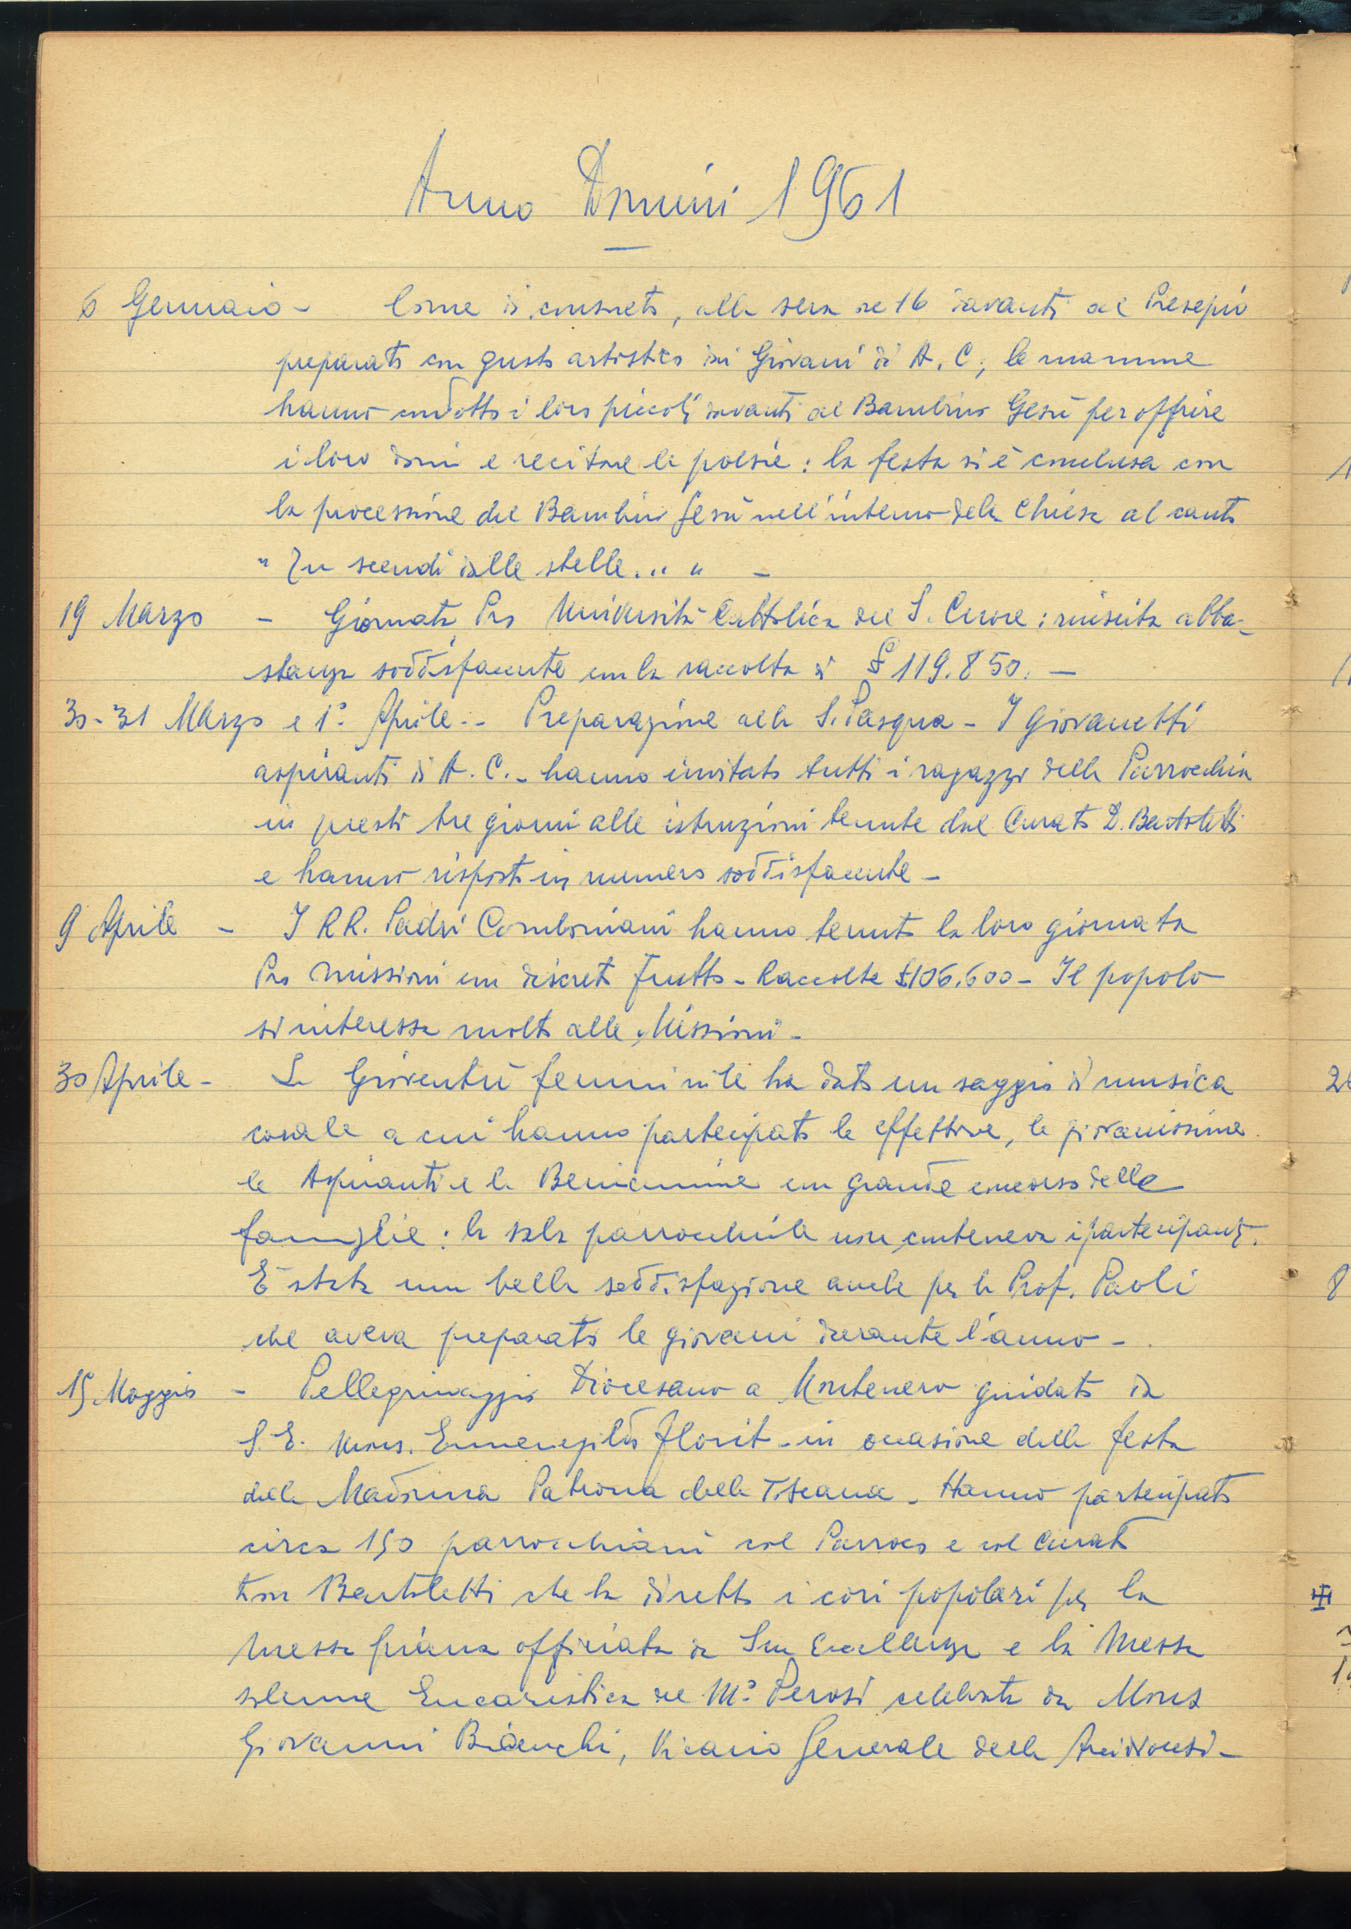 Anno Domini 1961
6 Gennaio - Come di consueto, alla sera ore 16 davanti al Presepio
preparato con gusto artistico dai Giovani di A. C., le mamme
hanno condotto i loro piccoli davanti al Bambino Gesù per offrire
i loro doni e recitare le poesie: la festa si è conclusa con
la processione del Bambin Gesù nell'interno della Chiesa al canto
"Tu scendi dalle stelle... " -
19 Marzo - Giornata Pro Università Cattolica del S. Cuore: riuscita abba-
stanza soddisfacente con la raccolta di £ 119.850. -
30-31 Marzo e 1° Aprile - Preparazione alla S. Pasqua - I Giovanetti
aspiranti di A. C. - hanno invitato tutti i ragazzi della Parrocchia
in questi tre giorni alle istruzioni tenute dal Curato D. Bartoletti
e hanno risposto in numero soddisfacente -
9 Aprile - I RR. Padri Comboniani hanno tenuto la loro giornata
Pro Missioni con discreto frutto - Raccolte £106.600 - Il popolo
si interessa molto alle Missioni -
30 Aprile - La Gioventù femminile ha dato un saggio di musica
corale a cui hanno partecipato le effettive, le giovanissime
le Aspiranti e le Beniamine con grande concorso delle
famiglie: la sala parrocchiale non conteneva i partecipanti.
È stata una bella soddisfazione anche per la Prof. Paoli
che aveva preparato le giovani durante l'anno -
15 Maggio - Pellegrinaggio Diocesano a Montenero guidato da
S. E. Mons. Ermenegildo Florit - in occasione della festa
della Madonna Patrona della Toscana - Hanno partecipato
circa 150 parrocchiani col Parroco e col Curato
Don Bartoletti che ha diretto i cori popolari per la
Messa piana officiata da Sua Eccellenza e la Messa
solenne Eucaristica del M° Perosi celebrata da Mons
Giovanni Bianchi, Vicario Generale della Arcidiocesi -